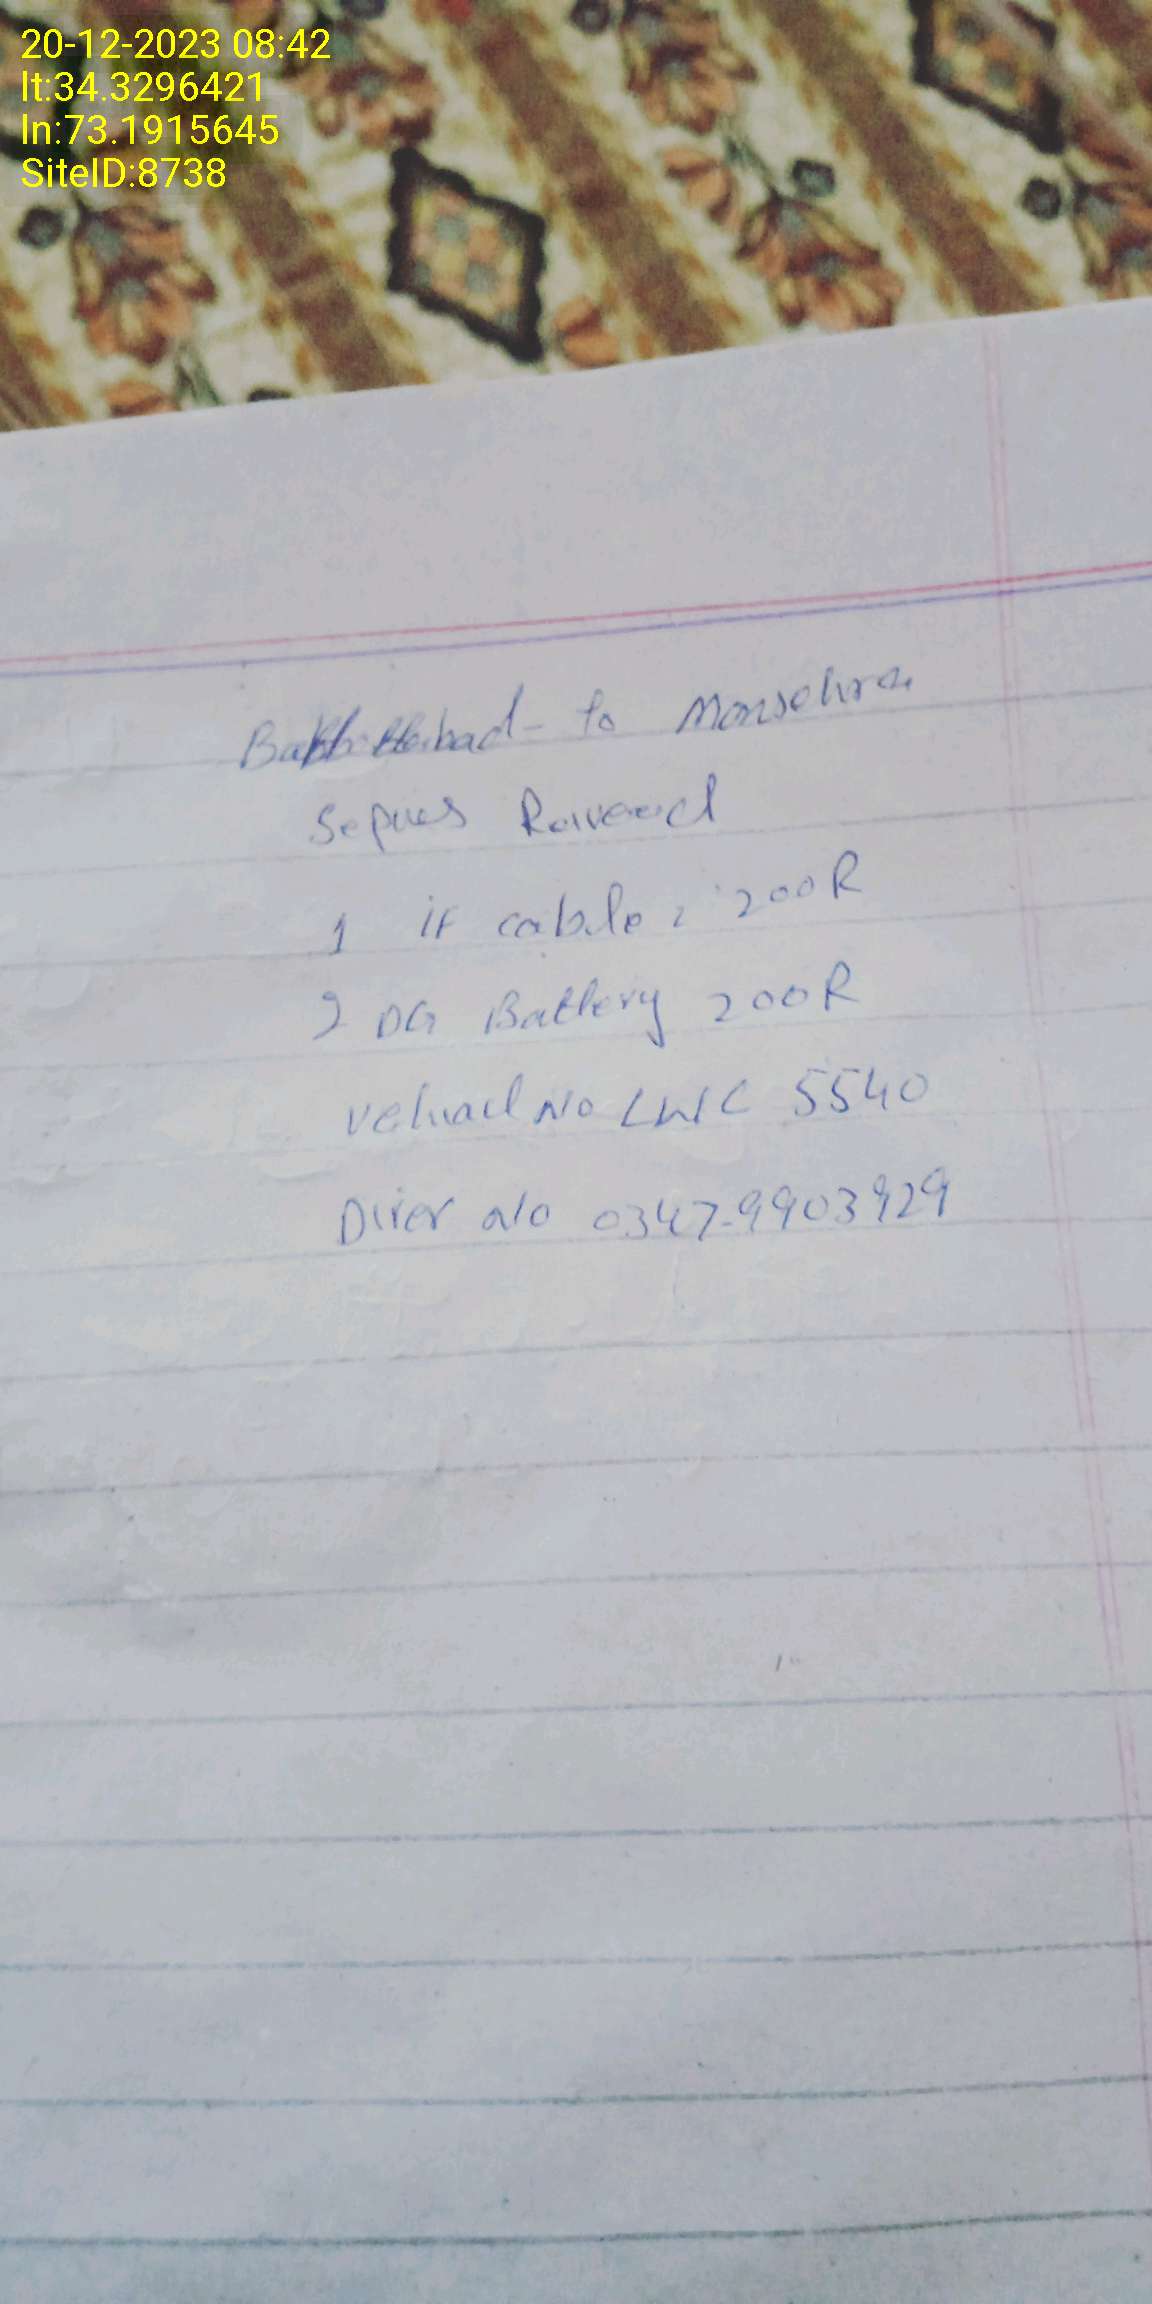 20-12-2023 08:42
lt:34.3296421
ln:73.1915645
SiteID:8738
to Mansehra
Sepues
1 if cable 200R
2 DG Battery 200R
No LWC 5540
Direr No 0347-9903929